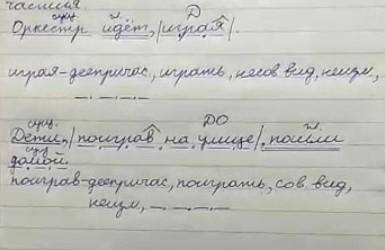 частия.
сущ. гл. Д
Оркестр идёт, |играя|.
играя-деепричас, играть, несов вид, неизм,
сущ. ДО гл.
Дети, |поиграв на улице|, пошли
домой.
поиграв-деепричас, поиграть, сов. вид,
неизм,